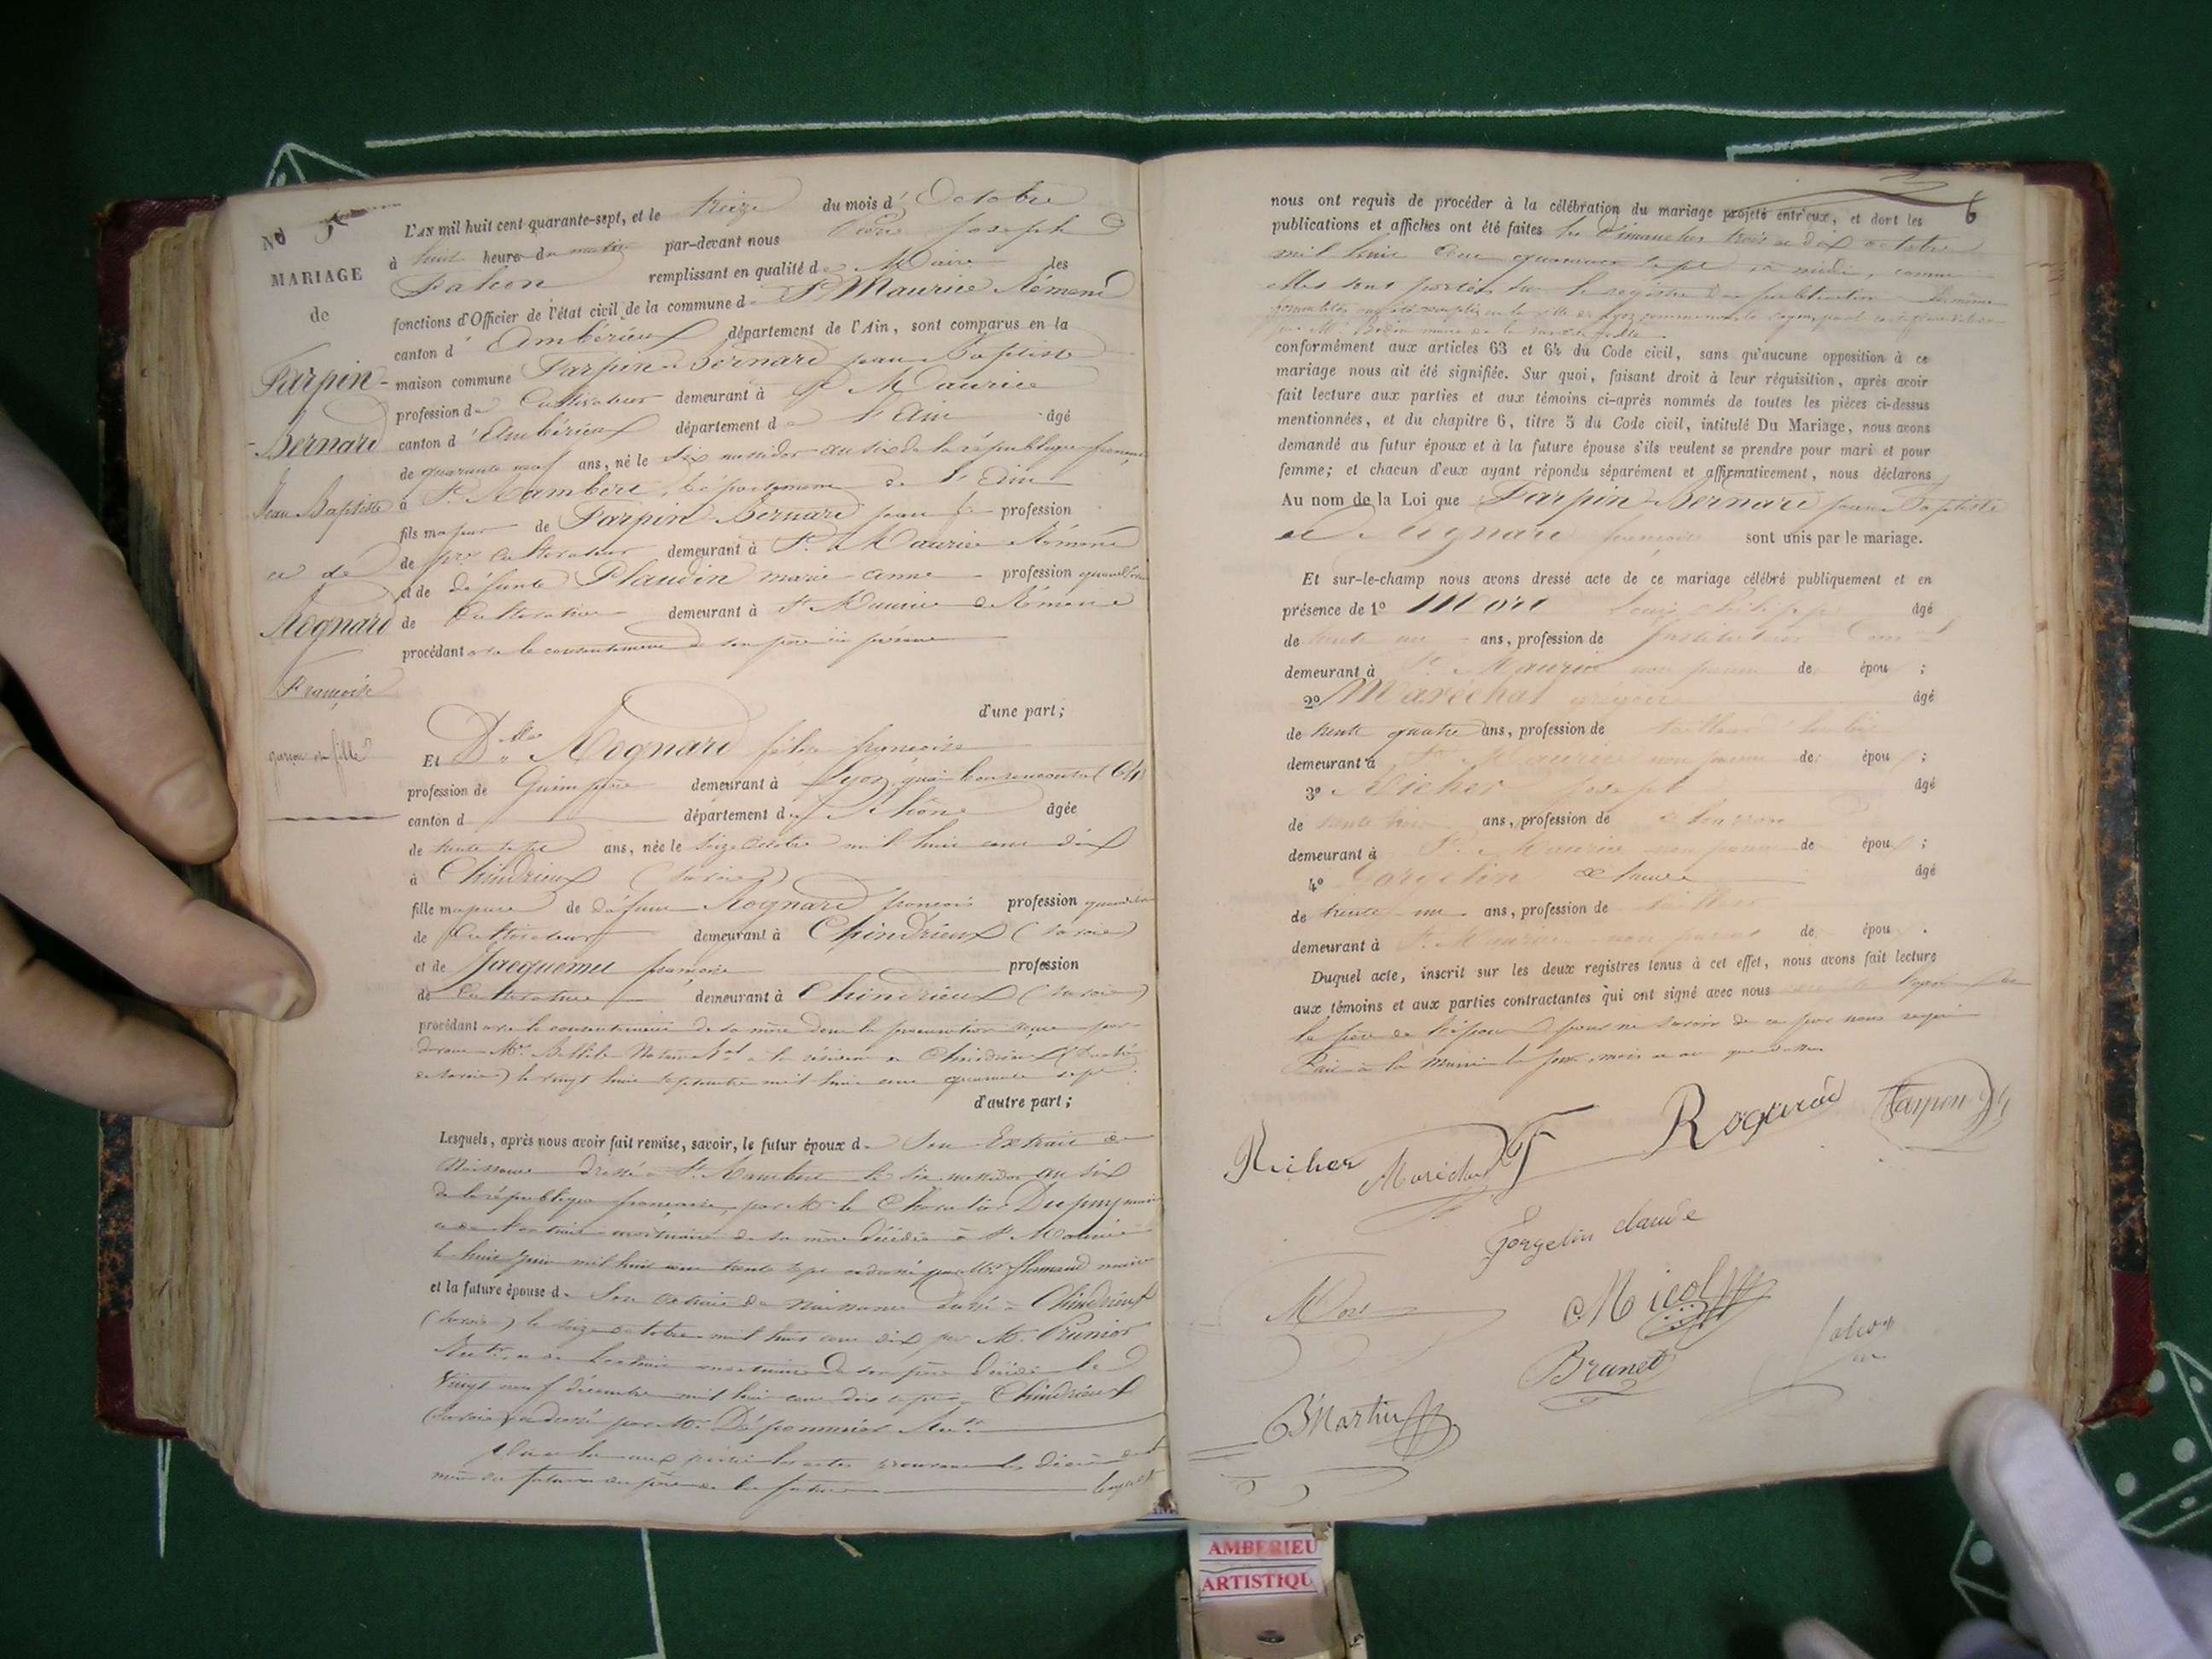 No 5
MARIAGE
de
Farpin-
Bernard
Jean Baptiste
et de
Rognard
Françoise
garçon et fille
L'AN mil huit cent quarante-sept, et le treize du mois d'Octobre
à huit heures du matin par-devant nous Joseph
Falcon remplissant en qualité de Maire les
fonctions d'Officier de l'état civil de la commune de St. Maurice Rémens
canton d'Ambérieux département de l'Ain, sont comparus en la
maison commune Farpin-Bernard jean Baptiste
profession de Cultivateur demeurant à St. Maurice
canton d'Ambérieux département de l'Ain âgé
de quarante neuf ans, né le six messidor an six de la république française
à St. Rambert, département de l'Ain
fils majeur de Farpin Bernard jean profession
de cultivateur demeurant à St. Maurice Rémens
et de défunte Plaudin marie anne profession
de Cultivatrice demeurant à St. Maurice de Rémens
procédant avec le consentement de son père ici présent
d'une part;
Et Dlle Rognard françoise
profession de Guimpière demeurant à Lyon, quai bon rencontre 64
canton d département du Rhône âgée
de trente sept ans, née le seize octobre mil huit cent dix
à Chindrieux (Savoie)
fille majeure de défunt Rognard françois profession
de Cultivateur demeurant à Chindrieux (Savoie)
et de Jacquemet françoise profession
de Cultivatrice demeurant à Chindrieux (Savoie)
procédant avec le consentement de sa mère dont la procuration reçue par
devant Me. Notaire à la résidence de Chindrieux (Duché
de Savoie) le vingt huit septembre mil huit cent quarante sept
d'autre part;
Lesquels, après nous avoir fait remise, savoir, le futur époux de Son Extrait de
Naissance dressé à St. Rambert le six messidor an six
de la république française, par Mr. le Chevalier Dupuy maire
et de l'extrait mortuaire de sa mère décédée à St Maurice
le huit juin mil huit cent trente sept et dressé par Mr. maire
et la future épouse de Son extrait de naissance dressé à Chindrieux
(Savoie) le seize octobre mil huit cent dix par Mr. Prunier
et de l'extrait mortuaire de son père décédé le
vingt neuf décembre mil huit cent dix sept à Chindrieux
(Savoie) et dressé par Mr. Dépommier
mère du futur et du père de la future
lesquels
6
nous ont requis de procéder à la célébration du mariage projeté entr'eux, et dort les
publications et affiches ont été faites les Dimanches trois et dix octobre
mil huit cent quarante sept, à midi, comme
elles sont portées sur le registre de publication
conformément aux articles 63 et 64 du Code civil, sans qu'aucune opposition à ce
mariage nous ait été signifiée. Sur quoi, faisant droit à leur réquisition, après avoir
fait lecture aux parties et aux témoins ci-après nommés de toutes les pièces ci-dessus
mentionnées, et du chapitre 6, titre 5 du Code civil, intitulé Du Mariage, nous avons
demandé au futur époux et à la future épouse s'ils veulent se prendre pour mari et pour
femme; et chacun d'eux ayant répondu séparément et affirmativement, nous déclarons
Au nom de la Loi que Farpin-Bernard jean Baptiste
et Rognard françoise sont unis par le mariage.
Et sur-le-champ nous avons dressé acte de ce mariage célébré publiquement et en
présence de 1º Mort Louis Philippe âgé
de trente un ans, profession de Instituteur
demeurant à St. Maurice non parent de épou ;
2º Maréchal grégoire âgé
de trente quatre ans, profession de tailleur
demeurant à St. Maurice non parent de épou ;
3º Richer joseph âgé
de trente trois ans, profession de charron
demeurant à St. Maurice non parent de épou ;
4º Gorgelin Claude âgé
de trente un ans, profession de tailleur
demeurant à St. Maurice non parent de épou .
Duquel acte, inscrit sur les deux registres tenus à cet effet, nous avons fait lecture
aux témoins et aux parties contractantes qui ont signé avec nous
le père de l'époux pour ne savoir de ce par nous requis
Fait à la Mairie les jour, mois et an que dessus
Richer Maréchal Rognard Farpin
Gorgelin claude
Mort C. Micol
Brunet Falcon
B Martin
AMBERIEU
ARTISTIQU